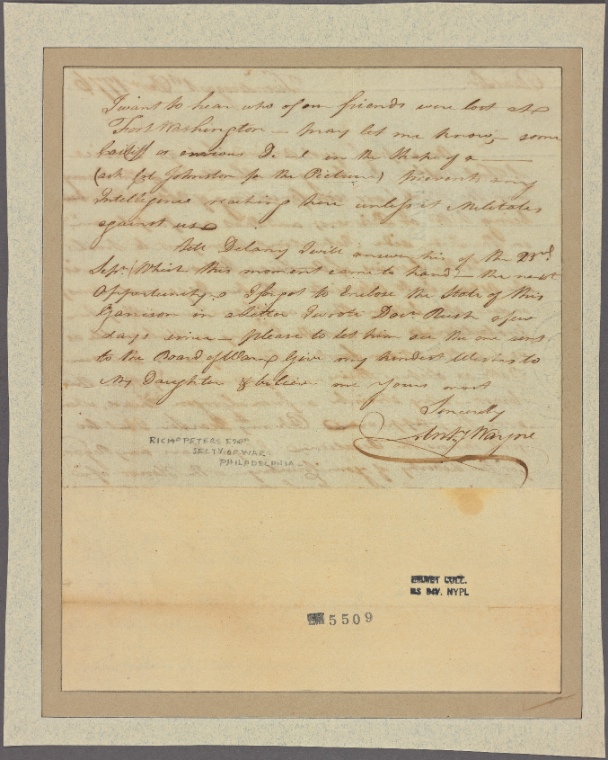 I want to hear who of our friends were lost at
Fort Washington — pray let me know, — some
Caitiff or envious D–l in the Shape of a ——
(ask Col Johnston for the Picture) prevents any
Intelligence reaching here unless it Militates
against us
tell Delany I will answer his of the 22nd
Sepr (which this moment came to hand) — the next
Opportunity. I forgot to Enclose the State of this
Garrison in a letter I wrote Doctr Rush a few
days since — please to let him see the one sent
to the Board of War & Give my kindest Wishes to
Mrs Daughter & believe me Yours most
Sincerely
Anty Wayne
RICHD PETERS ESQR
SECTY OF WAR
PHILADELPHIA
EMMET COLL.
MS DIV. NYPL
5509